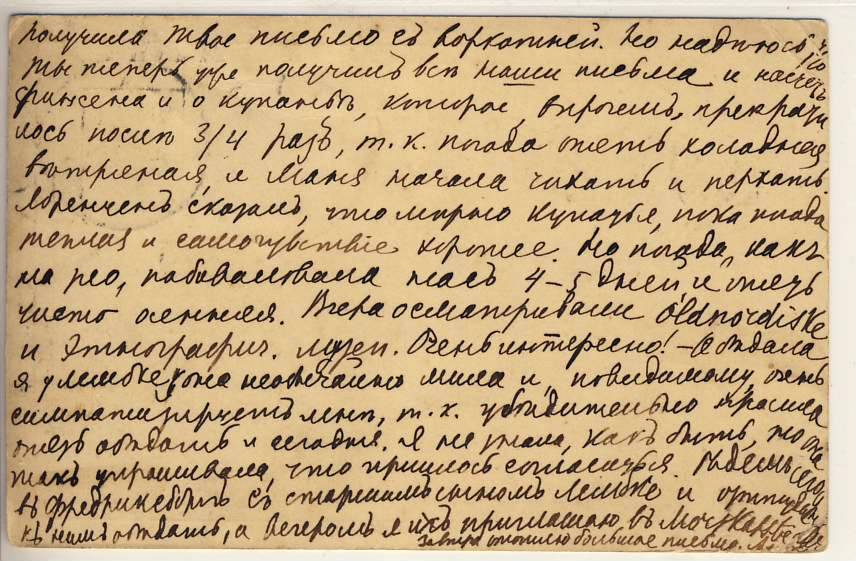 получила твое письмо съ воркотней. Но надѣюсь, что
ты теперь уже получилъ всѣ наши письма и насчетъ
и о купаньѣ, которое, впрочемъ, прекрати
лось послѣ 3/4 разъ, т. к. погода опять холодная
вѣтреная и Маня начала чихать и перхать.
сказалъ, что можно купаться, пока погода
теплая и самочувствіе хорошее. Но погода, какъ
на зло, побаловала насъ 4–5 дней и опять
чисто осенняя. Вчера осматривали oldnordiske
и этнографич. музеи. Очень интересно! – Обѣдала
я у Лембке, она необычайно мила и, повидимому, очень
симпатизируетъ мнѣ, т. к. убѣдительно просила
опять обѣдать и сегодня. Я не знала, какъ быть, но она
такъ упрашивала, что пришлось согласиться. Ѣдемъ
въ Фредриксборгъ съ старшимъ сыномъ Лембке и
къ нимъ обѣдать, а вечеромъ я ихъ приглашаю въ
Завтра отошлю большое письмо. М.